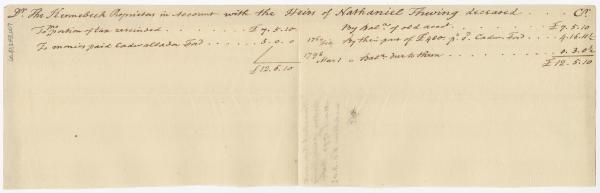 Dr. The Kennebeck Proprietors in Account with the Heirs of Nathaniel Thwing deceased . . . . Cr.
To proportion of tax rescinded . . . £ 7. 5. 10
To monies paid Cadwallada Ford . . . 5. 0. 0
£ 12. 5. 10
By Bal. of old acct. . . . £ 7. 5. 10
By their part of £400. pd. Cadwr. Ford . . 4. 16. 11½
Mar. 1 " Balce. due to them . . . 0. 3. 0½
£ 12. 5. 10